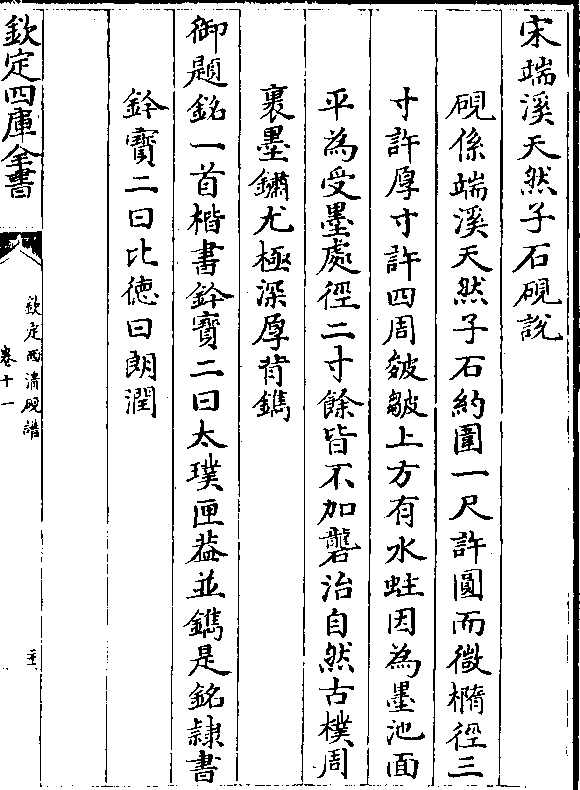 宋端溪天然子石硯說
硯係端溪天然子石約圍一尺許圓而微橢徑三
寸許厚寸許四周皴皺上方有水蛀因為墨池面
平為受墨處徑二寸餘皆不加礱治自然古樸周
裹墨鏽尤極深厚背鐫
御題銘一首楷書鈐寶二曰太璞匣葢並鐫是銘隸書
鈐寶二曰比徳曰朗潤
欽定四庫全書
欽定西清硯譜
卷十一